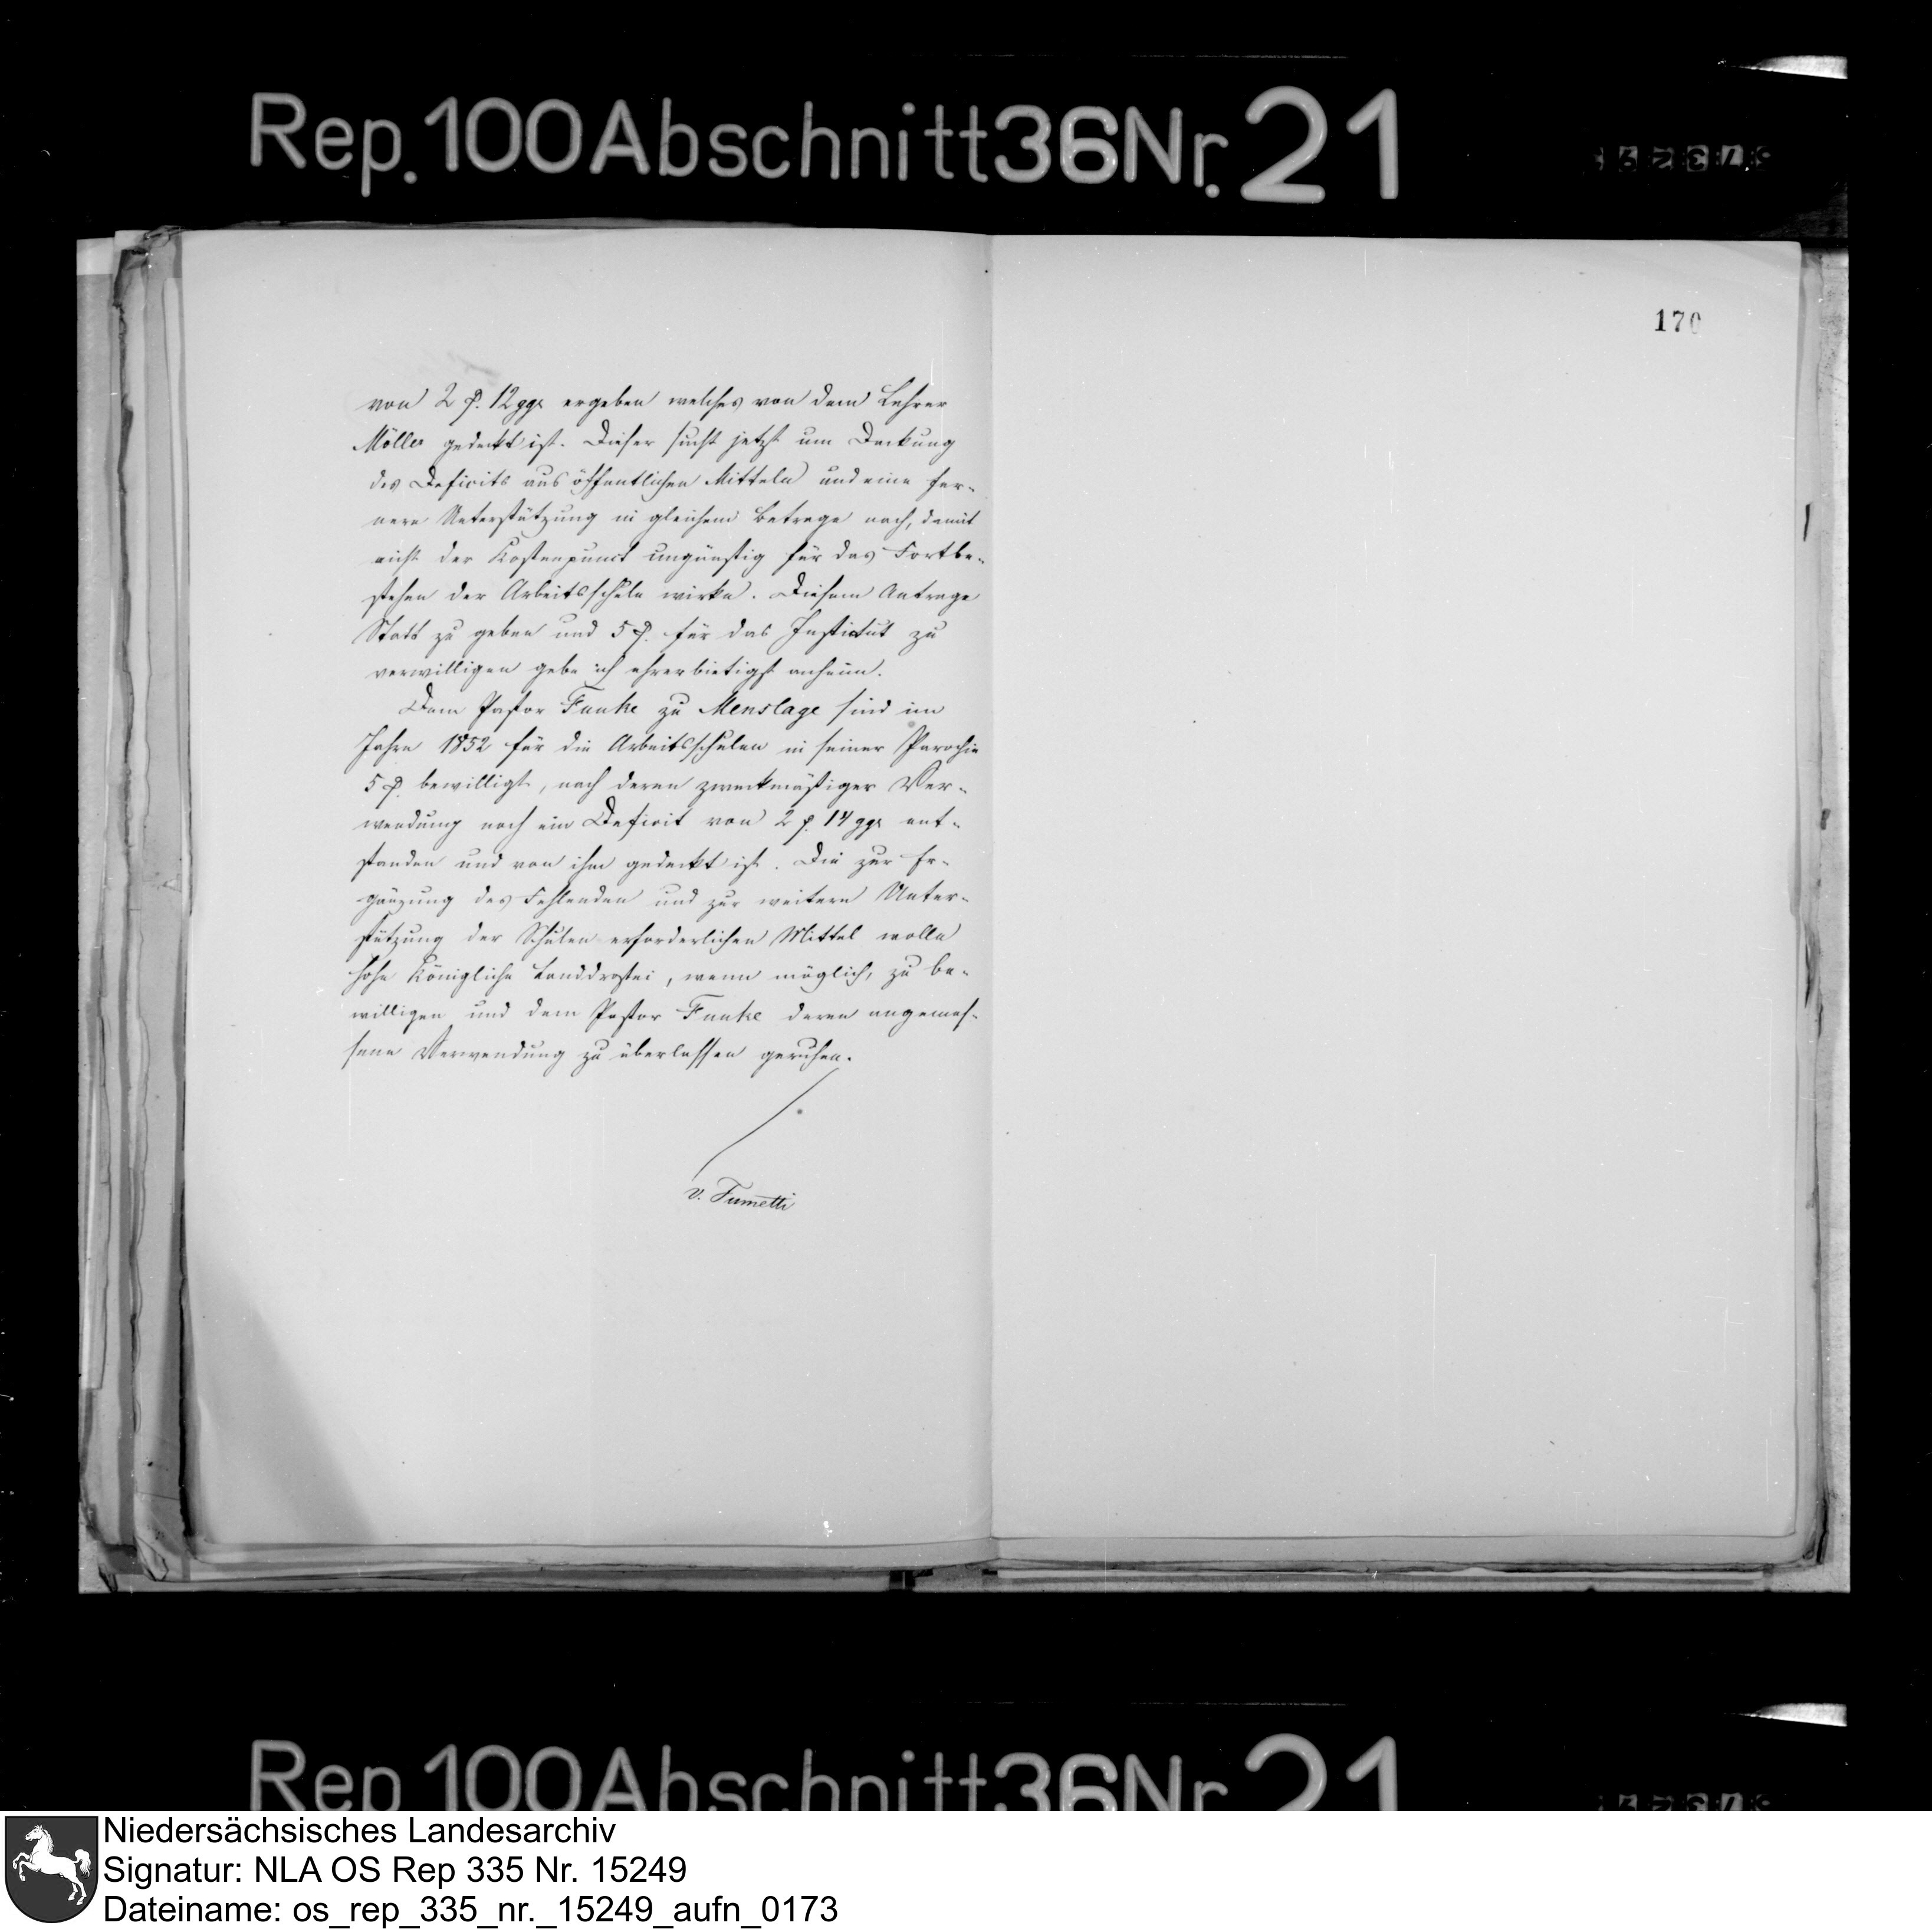 Rep. 100 Abschnitt 36 Nr. 21
170
von 2 ₰. 12 ggr ergeben welches von dem Lehrer
Möller gedeckt ist. Dieser sucht jetzt um Deckung
des Deficits aus öffentlichen Mitteln und eine fer-
nere Unterstützung in gleichem Betrage nach, damit
nicht der Kostenpunct ungünstig für das Fortbe-
stehen der Arbeitsschule wirke. Diesem Antrage
Statt zu geben und 5 ₰. für das Institut zu
verwilligen gebe ich ehrerbietigst anheim.
Dem Pastor Funke zu Menslage sind im
Jahre 1852 für die Arbeitsschulen in seiner Parochie
5 ₰. bewilligt, nach deren zweckmäßiger Ver-
wendung noch ein Deficit von 2 ₰. 14 ggr ent-
standen und von ihm gedeckt ist. Die zur Er-
gänzung des Fehlenden und zur weitern Unter-
stützung der Schulen erforderlichen Mittel wolle
hohe Königliche Landdrostei, wenn möglich, zu be-
willigen und dem Pastor Funke deren angemes-
sene Verwendung zu überlassen geruhen.
v. Fumetti
Rep. 100 Abschnitt 36 Nr. 21
Niedersächsisches Landesarchiv
Signatur: NLA OS Rep 335 Nr. 15249
Dateiname: os_rep_335_nr._15249_aufn_0173